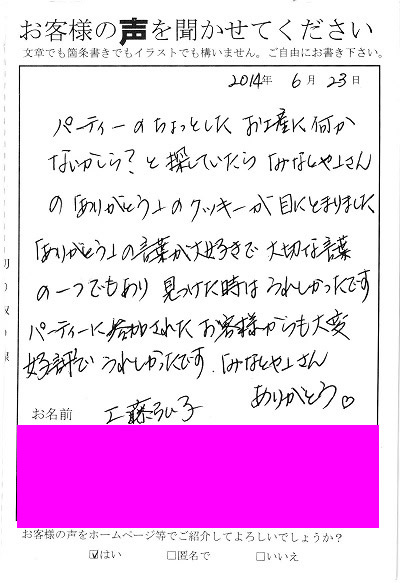 お客様の声を聞かせてください
文章でも箇条書きでもイラストでも構いません。ご自由にお書き下さい。
2014年 6月 23日
パーティーのちょっとした お土産に何か
ないかしら? と 探していたら 「みなとや」さん
の 「ありがとう」の クッキーが 目にとまりました
「ありがとう」の言葉が大好きで 大切な言葉
の一つでもあり 見つけた時は うれしかったです
パーティーに参加された お客様からも大変
好評で うれしかったです. 「みなとや」さん
ありがとう♡
お名前 工藤 子
お客様の声をホームページ等でご紹介してよろしいでしょうか?
☑はい □匿名で □いいえ